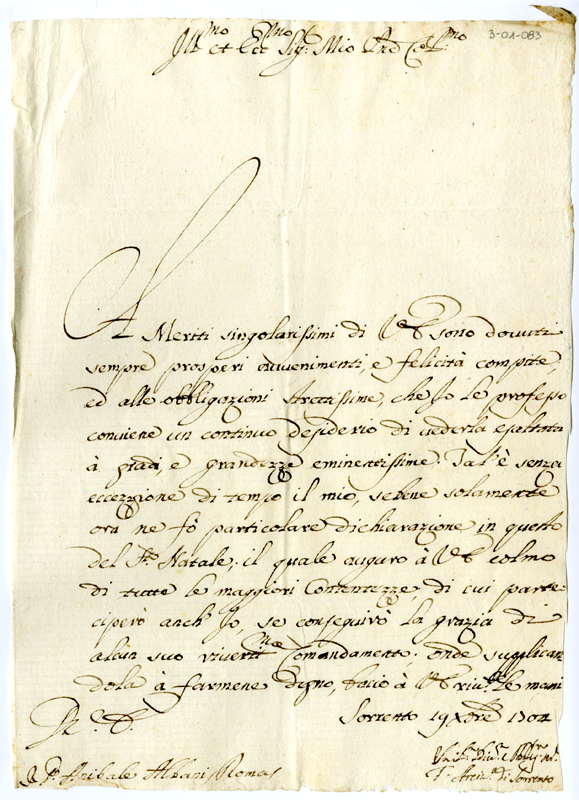 3-01-083
Ill^mo et Ecc^mo Sig.^r Mio Pnd Col^mo
A Meriti singolarissimi di VE sono dovuti
sempre prosperi avvenimenti, e felicità compite,
ed alle obbligazioni strettissime, che Io le professo
conviene un continuo desiderio di vederla esaltata
à gradi, e grandezze eminentissime. Tal'è senza
eccezzione di tempo il mio, sebene solamente
ora ne fò particolare dichiarazione in questo
del S^to Natale; il quale auguro à VE colmo
di tutte le maggiori Contentezze di cui parte-
ciperò anch'Io se conseguirò la grazia di
alcun suo riverit^mo Comandamento; onde supplican
dola à farmene degno, bacio à VE riv.^te le mani
Sorrento 19 Xbre 1704
D. Anibale Albani Roma
di Sorrento